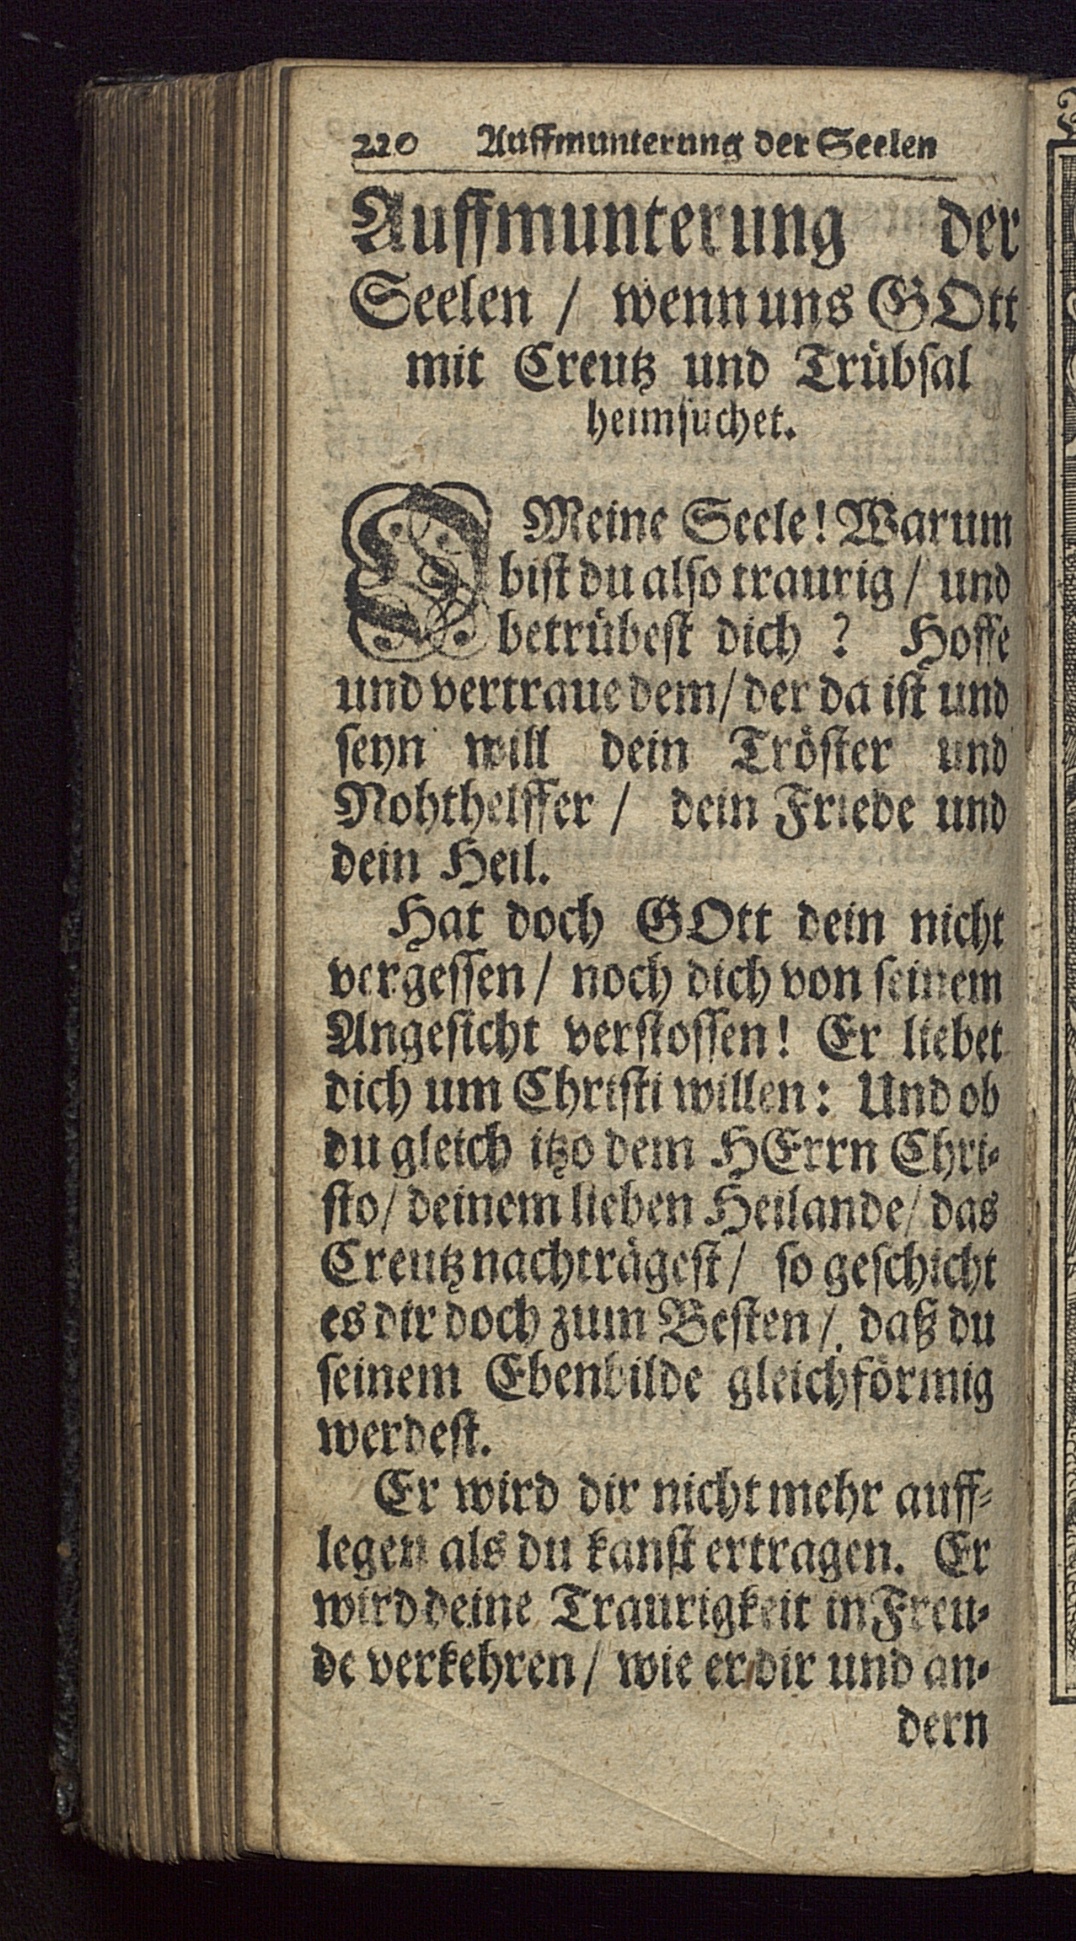 220 Auffmunterung der Seelen
Auffmunterung der
Seelen / wenn uns GOtt
mit Creutz und Trübsal
heimsuchet.
O Meine Seele! Warum
bist du also traurig / und
betrübest dich ? Hoffe
und vertraue dem / der da ist und
seyn will dein Tröster und
Nohthelffer / dein Friede und
dein Heil.
Hat doch GOtt dein nicht
vergessen / noch dich von seinem
Angesicht verstossen! Er liebet
dich um Christi willen: Und ob
du gleich itzo dem HErrn Chri-
sto / deinem lieben Heilande / das
Creutz nachträgest / so geschicht
es dir doch zum Besten / daß du
seinem Ebenbilde gleichförmig
werdest.
Er wird dir nicht mehr auff-
legen als du kanst ertragen. Er
wird deine Traurigkeit in Freu-
de verkehren / wie er dir und an-
dern